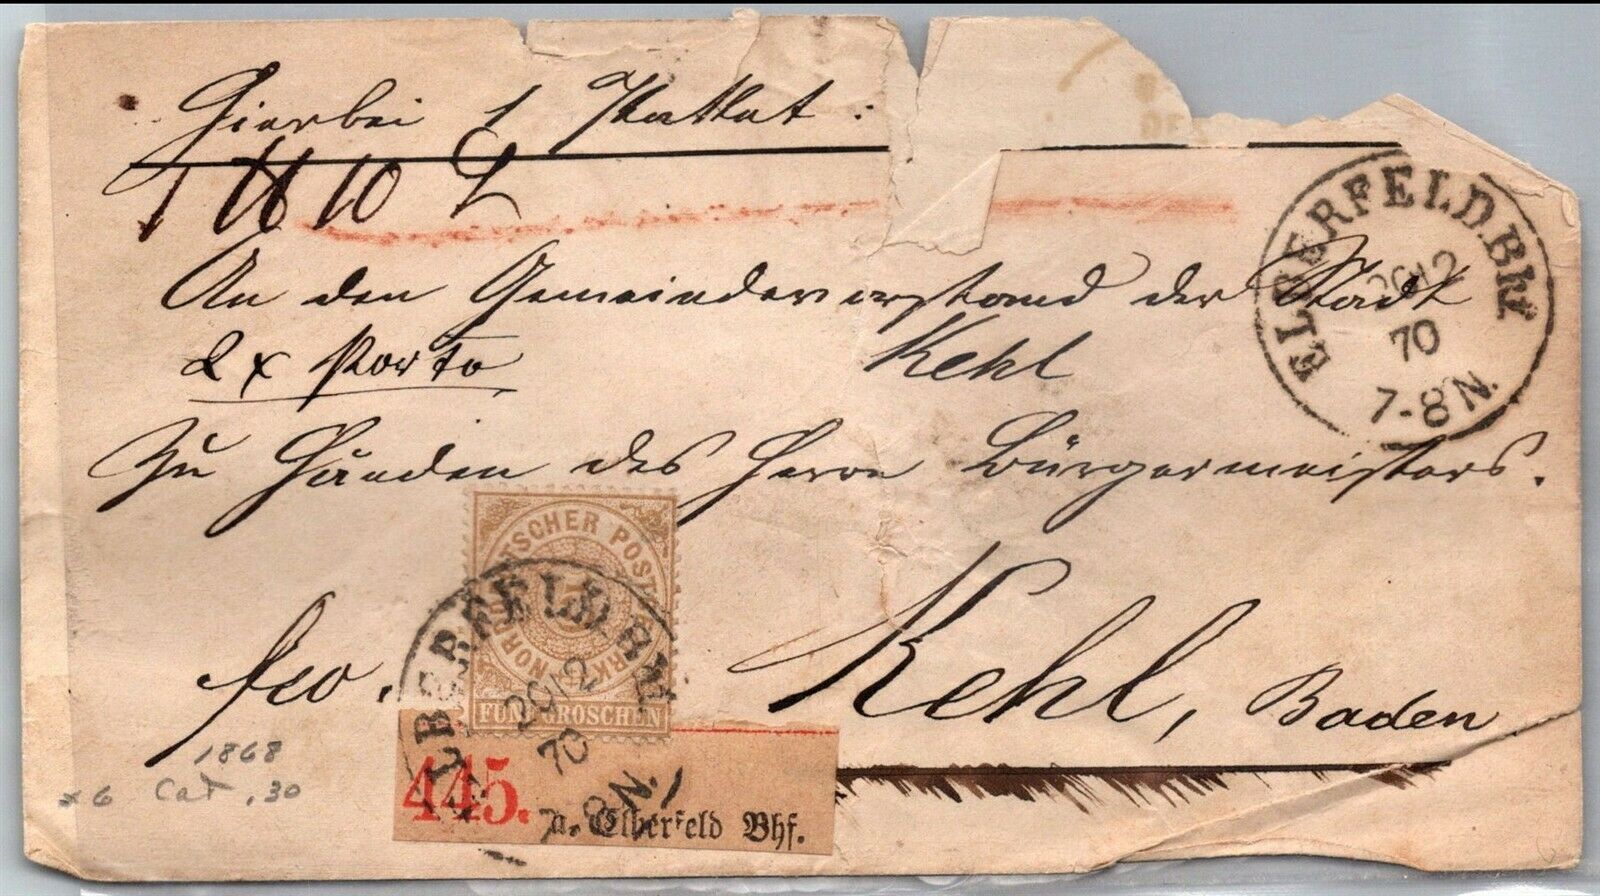 Hierbei 1 Packet :
1 ℔ 10 L
An den Gemeindevorstand der Stadt
Kehl
2 x Porto
Zu Händen des Herrn Bürgermeisters.
fco.
Kehl, Baden
ELBERFELD.BHf
2012
70
7-8 N.
NORDDEUTSCHER POSTBEZIRK
5
FÜNF GROSCHEN
ELBERFELD.BHf
2012
70
7-8 N.
445.
a. Elberfeld Bhf.
1868
x6 Cat .30